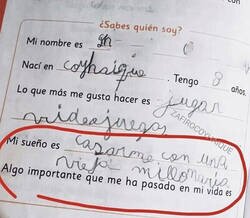 ¿Sabes quién soy?
Mi nombre es
Nací en coyhaique. Tengo 8 años.
Lo que más me gusta hacer es jugar
videojuegos
Mi sueño es casarme con una
vieja millonaria
Algo importante que me ha pasado en mi vida es